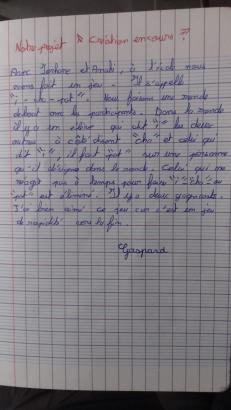 Notre projet " Création en cours "
Avec Ianhore et Anaïs, à l'école nous
avons fait un jeu. Il s'appelle
"i - cha - pat". Nous faisons une ronde
debout avec les participants. Dans la ronde
il y a un élève qui dit "i" les deux
autres à côté disent "cha" et celui qui
dit "i", il fait "pat" sur une personne
qu'il désigne dans la rond. Celui qui ne
réagit pas à temps pour faire "i" "cha" ou
"pat" est éliminé. Il y a deux gagnants.
J'ai bien aimé ce jeu car c'est un jeu
de rapidité vers la fin.
Gaspard